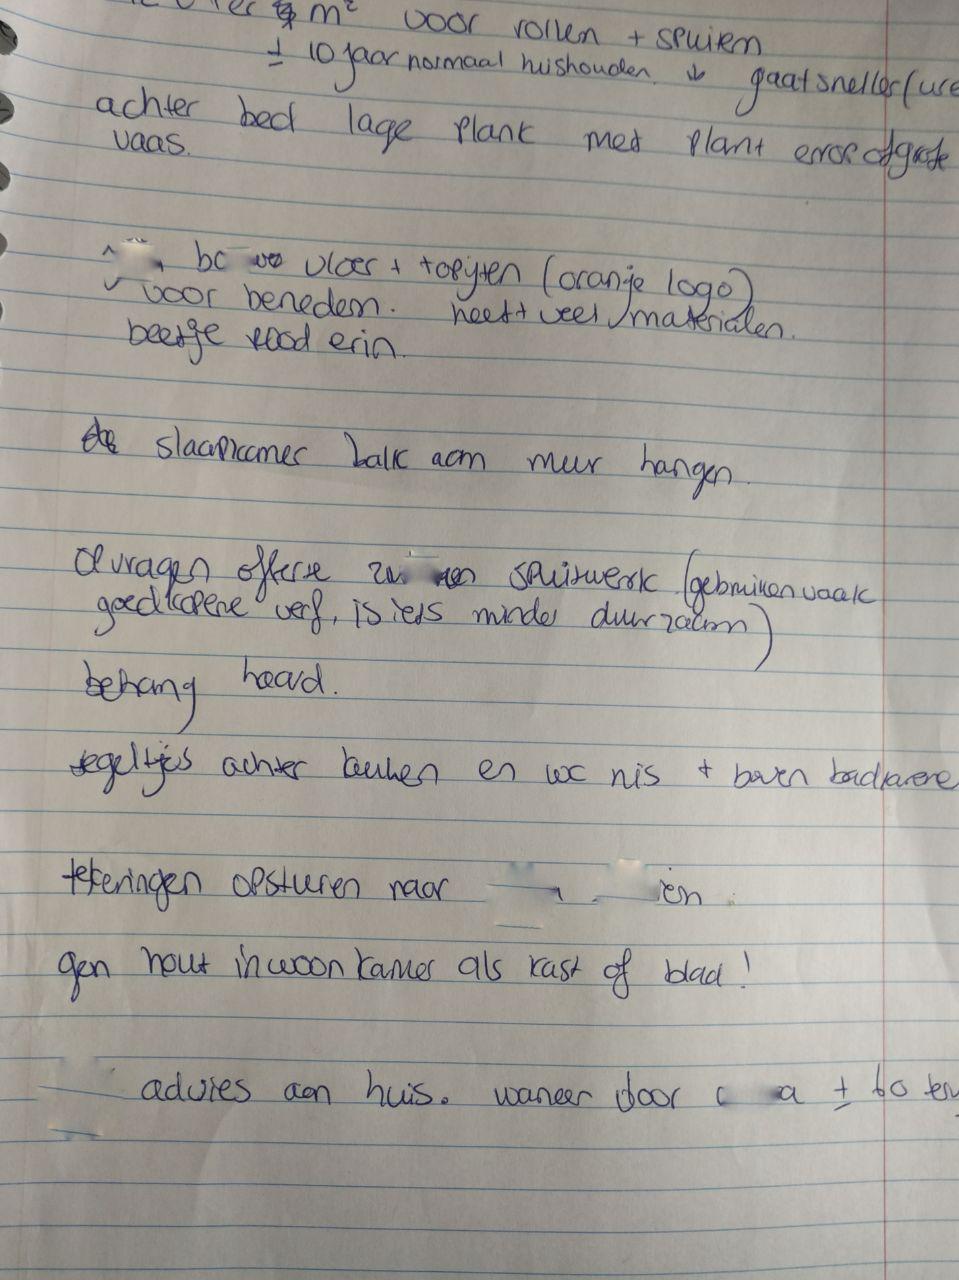 m² voor rollen + spuiten
± 10 jaar normaal huishouden ↓ gaat sneller (
achter bed lage plank met plant erop of grote
vaas.
vloer + tapijten (oranje logo)
voor beneden. heeft veel materialen.
beetje rood erin.
slaapkamer balk aan muur hangen.
offerte spuitwerk (gebruiken vaak
goedkopere verf, is iets minder duurzaam)
behang hoard.
tegeltjes achter keuken en wc nis + boven badkamer
tekeningen opsturen naar
gen hout in woonkamer als kast of blad!
advies aan huis. waneer door ± 60